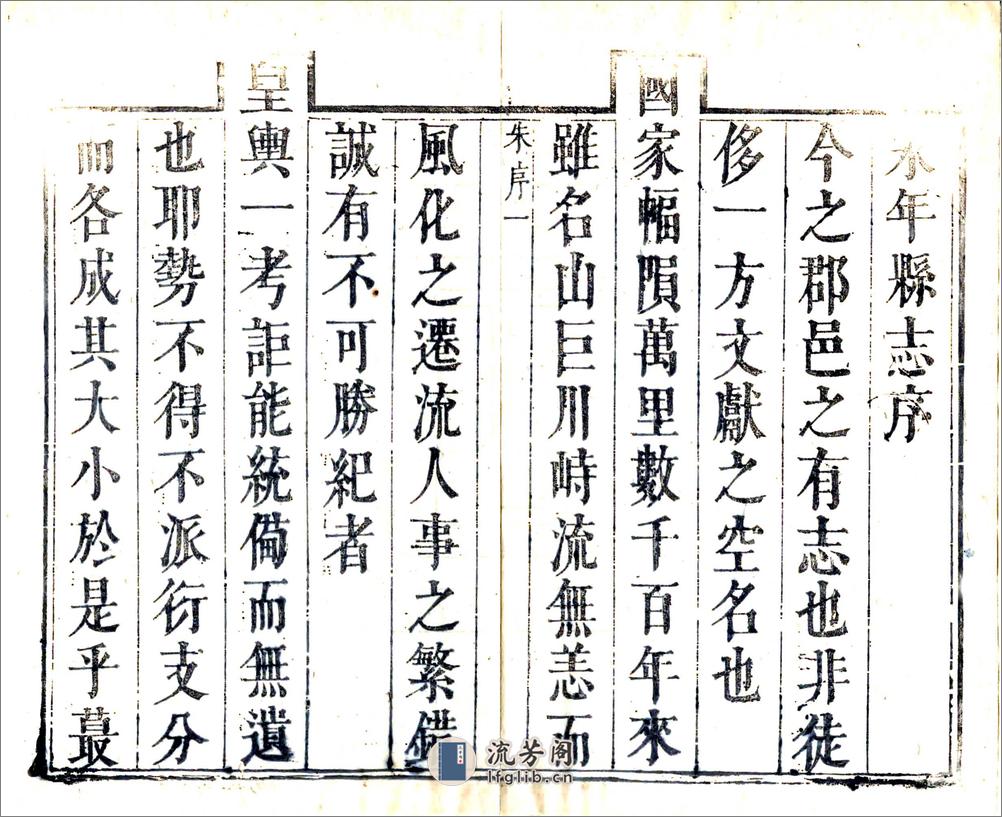 永年縣志序
今之郡邑之有志也非徒
侈一方文獻之空名也
國家幅隕萬里數千百年來
雖名山巨川峙流無恙而
朱序一
風化之遷流人事之繁錯
誠有不可勝紀者
皇輿一考詎能統偹而無遺
也耶勢不得不派衍支分
而各成其大小於是乎蕞
流芳阁
lfglib.cn